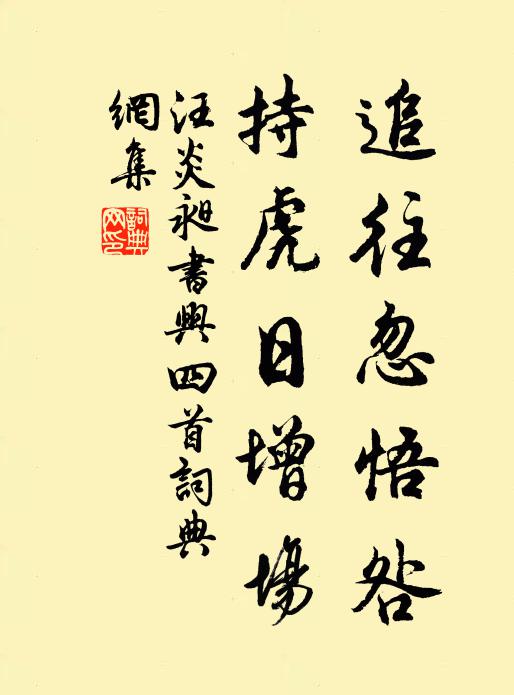 追往忽悟咎
持虎日增場
汪炎昶書興四首詞典
網集
詞典
网印